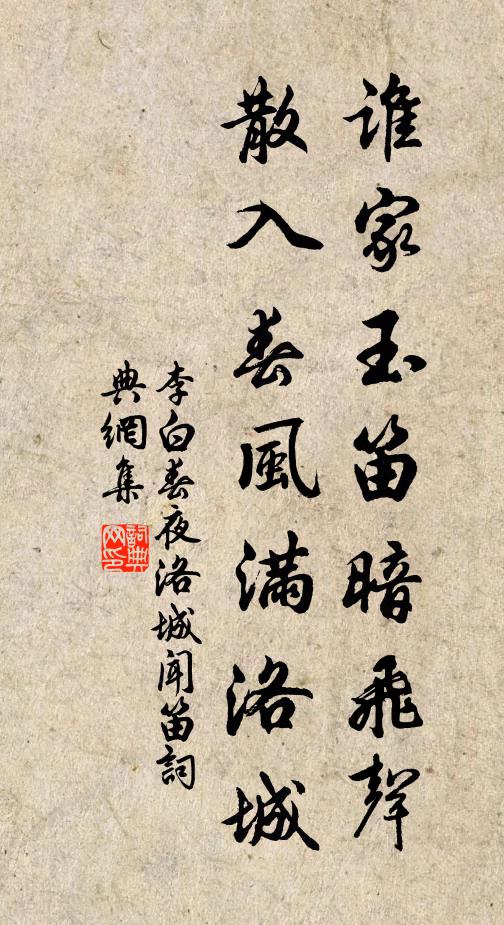 誰家玉笛暗飛聲
散入春風滿洛城
李白春夜洛城聞笛詞
典網集
詞典网印